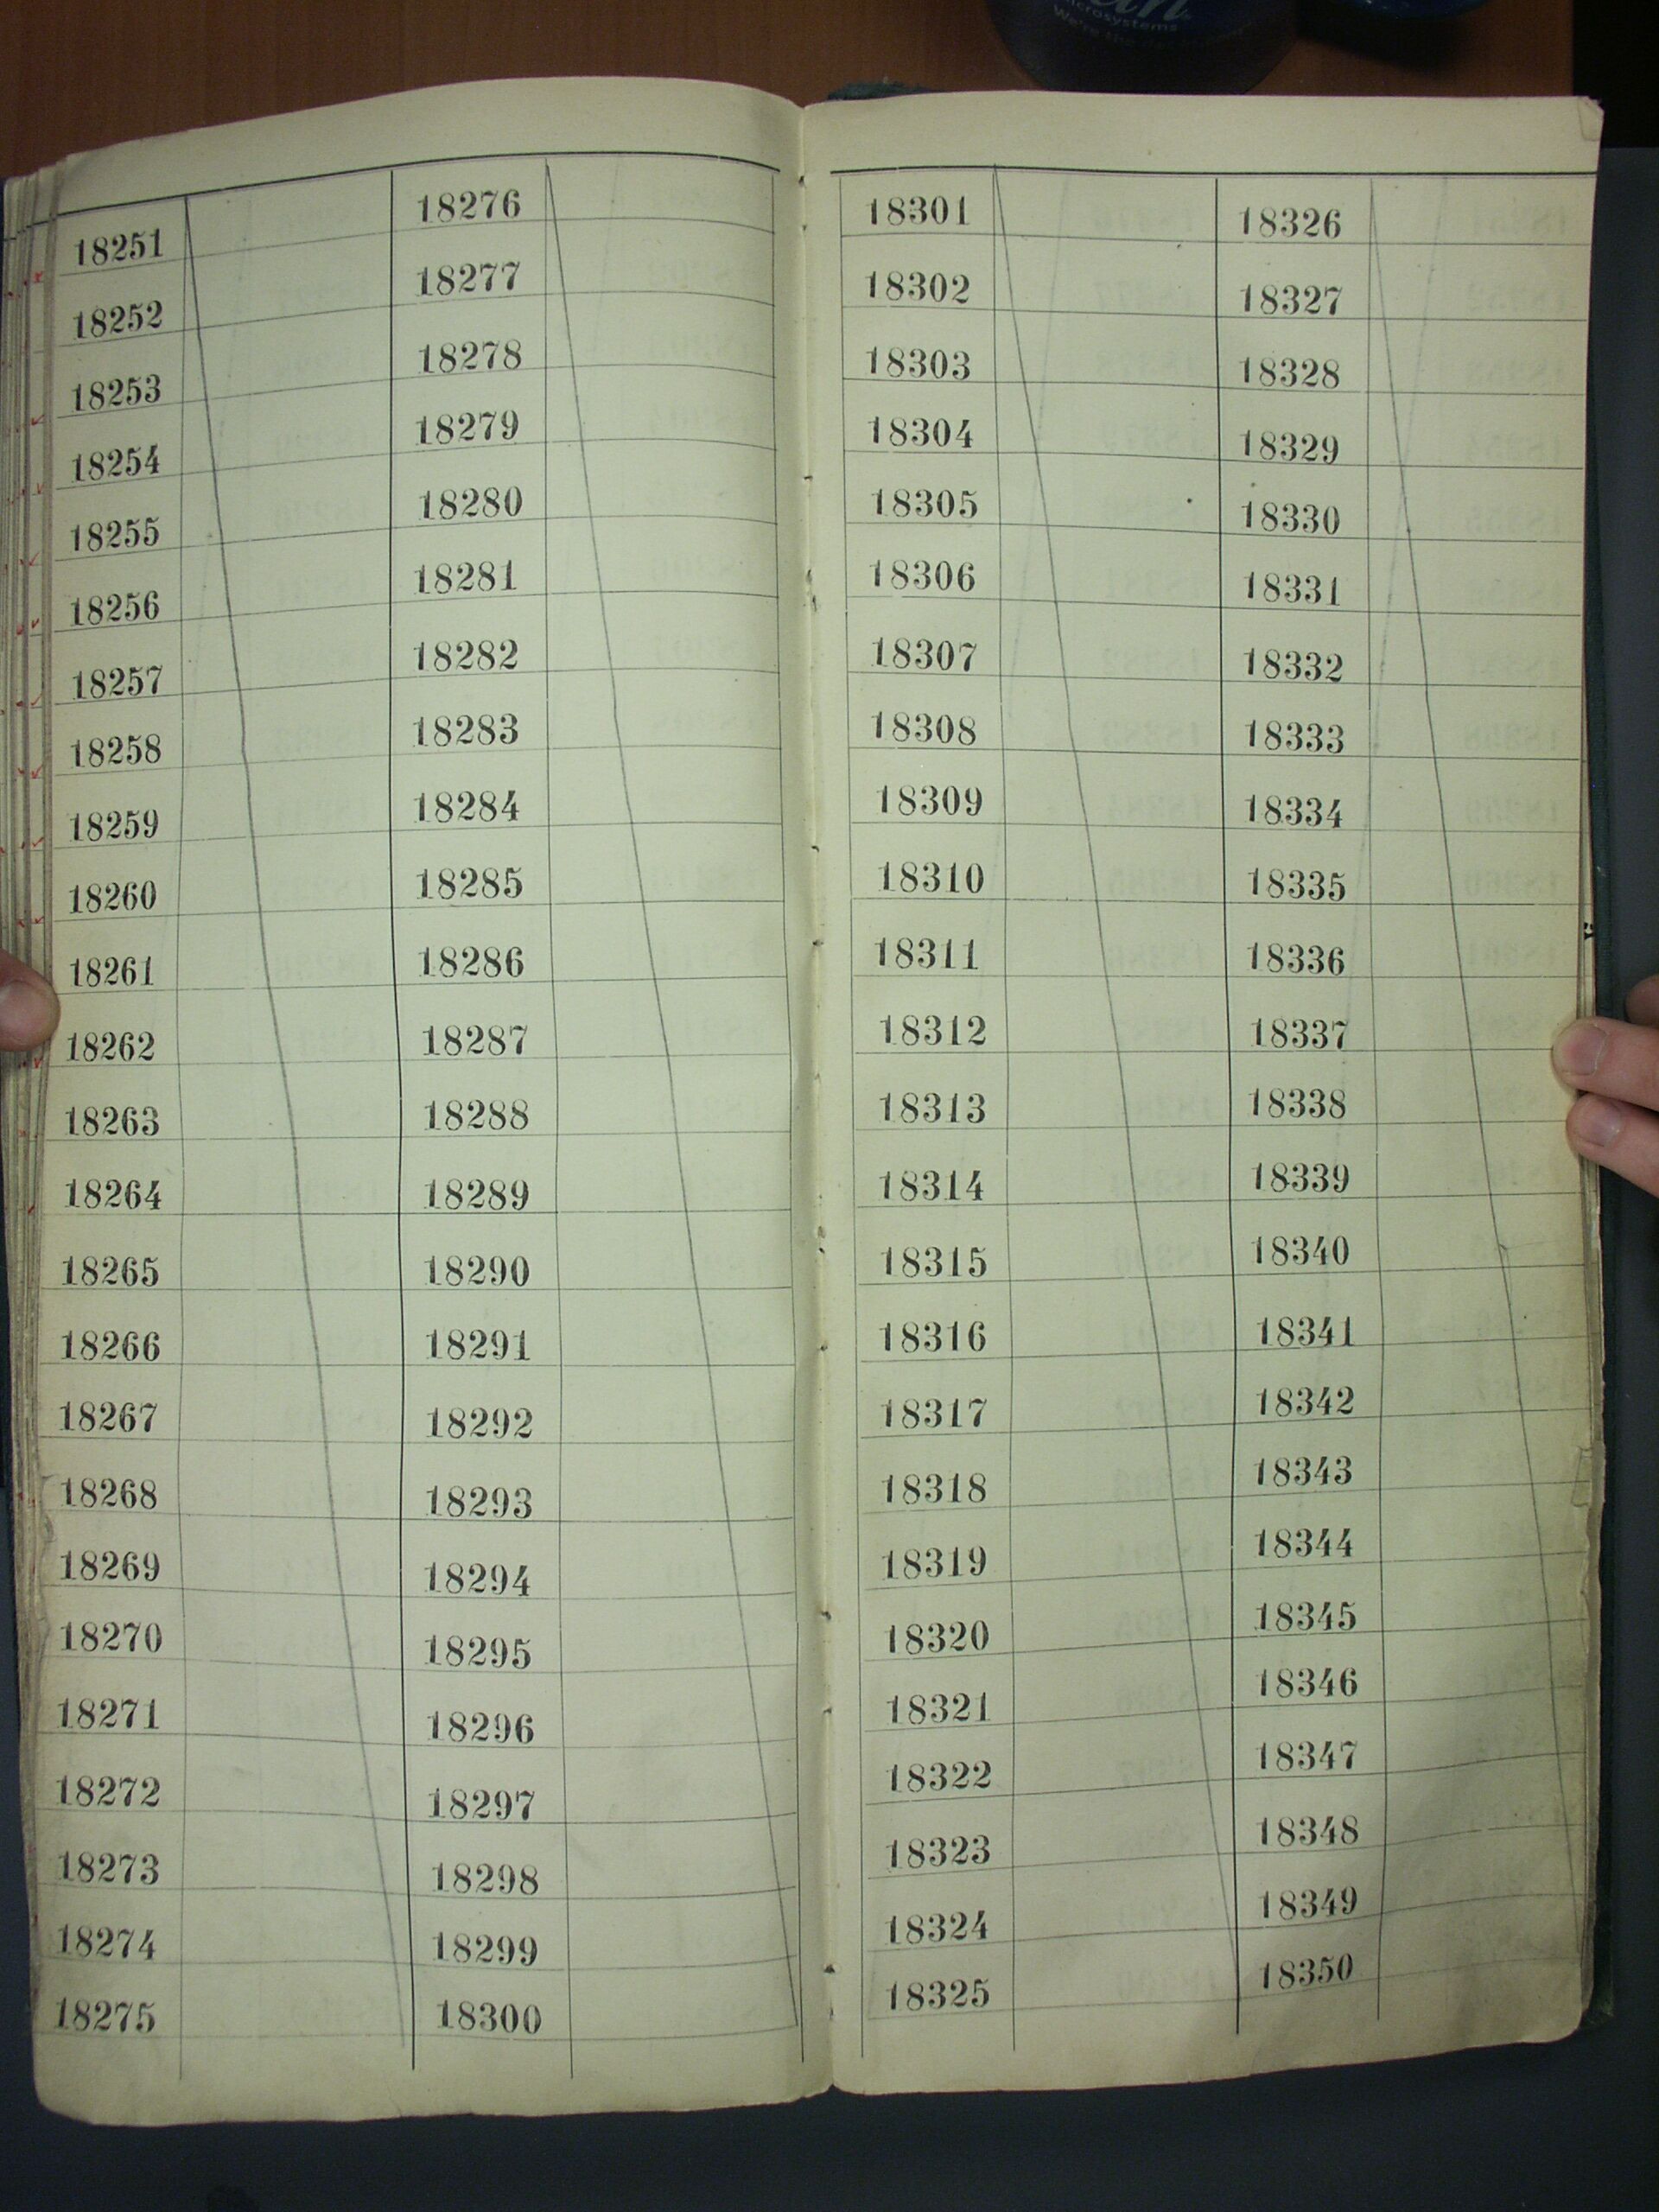 microsystems
We're the
18251
18252
18253
18254
18255
18256
18257
18258
18259
18260
18261
18262
18263
18264
18265
18266
18267
18268
18269
18270
18271
18272
18273
18274
18275
18276
18277
18278
18279
18280
18281
18282
18283
18284
18285
18286
18287
18288
18289
18290
18291
18292
18293
18294
18295
18296
18297
18298
18299
18300
18301
18302
18303
18304
18305
18306
18307
18308
18309
18310
18311
18312
18313
18314
18315
18316
18317
18318
18319
18320
18321
18322
18323
18324
18325
18326
18327
18328
18329
18330
18331
18332
18333
18334
18335
18336
18337
18338
18339
18340
18341
18342
18343
18344
18345
18346
18347
18348
18349
18350